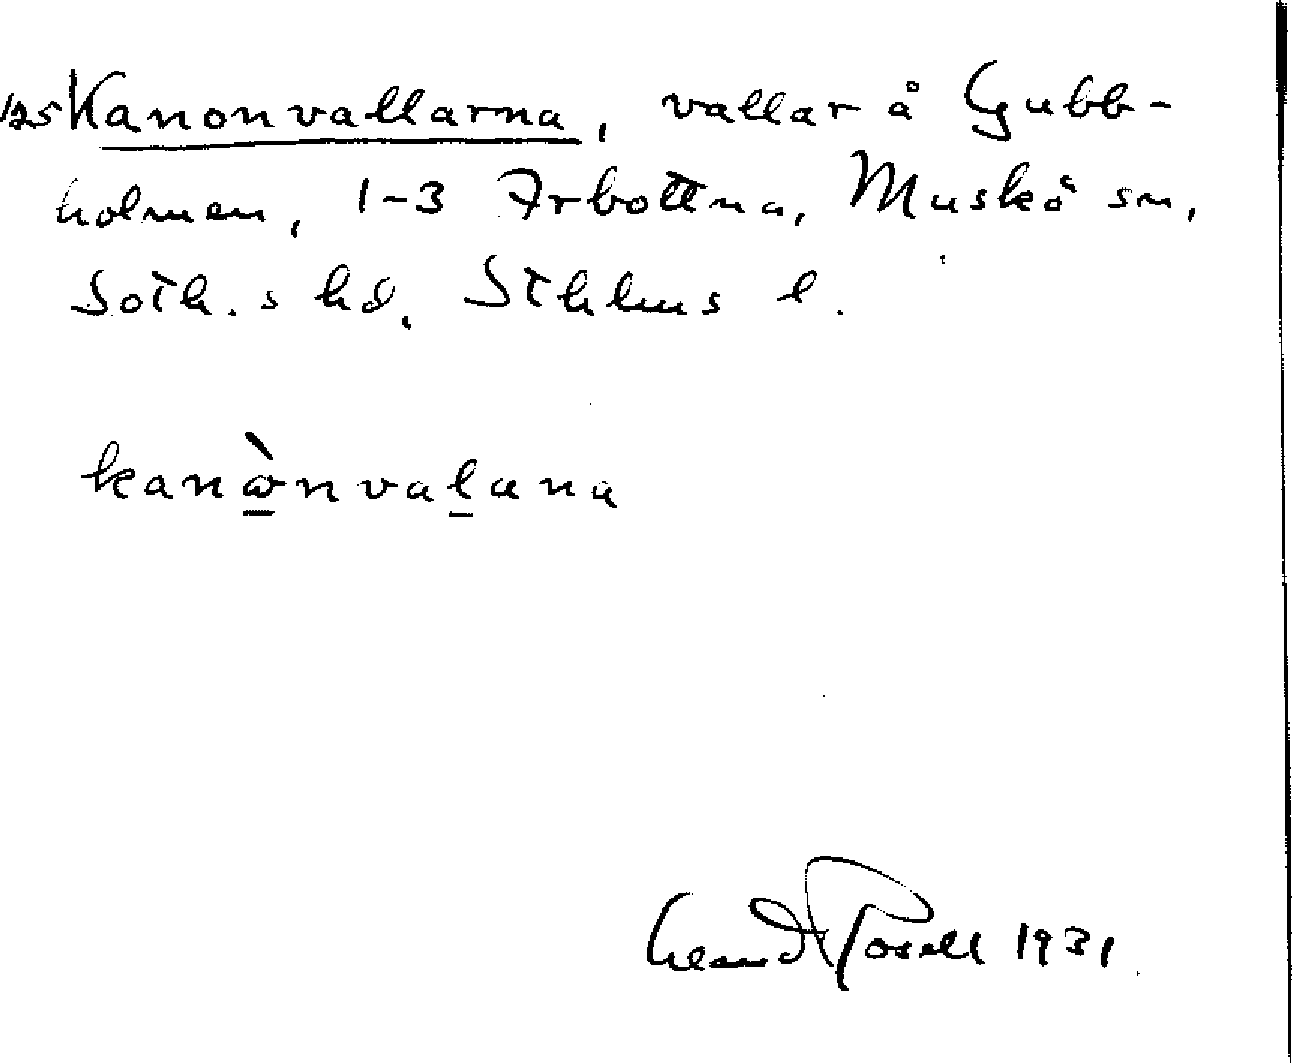 125 Kanonvallarna, vallar å Gubb-
holmen, 1-3 Arbottna, Muskö sn,
Soth.s hd. Sthlms l.
kanὼnvaḻana
1931